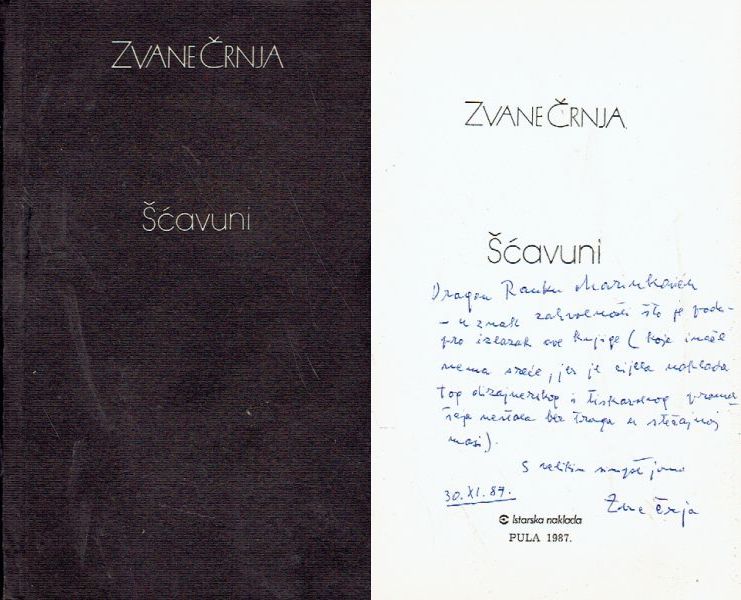 ZVANE ČRNJA
Šćavuni
ZVANE ČRNJA
Šćavuni
Dragom Ranku Marinkoviću
- u znak zahvalnosti što je podu-
pro izlazak ove knjige (koja inače
nema sreće, jer je cijela naklada
tog dizajnerskog i tiskarskog proma-
šaja nestala bez traga u stečajnoj
masi).
S velikim simpatijama
30.XI.87.
Zvane Črnja
Istarska naklada
PULA 1987.